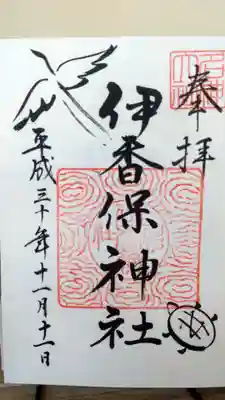 奉拝
伊香保神社
平成三十年十一月十一日